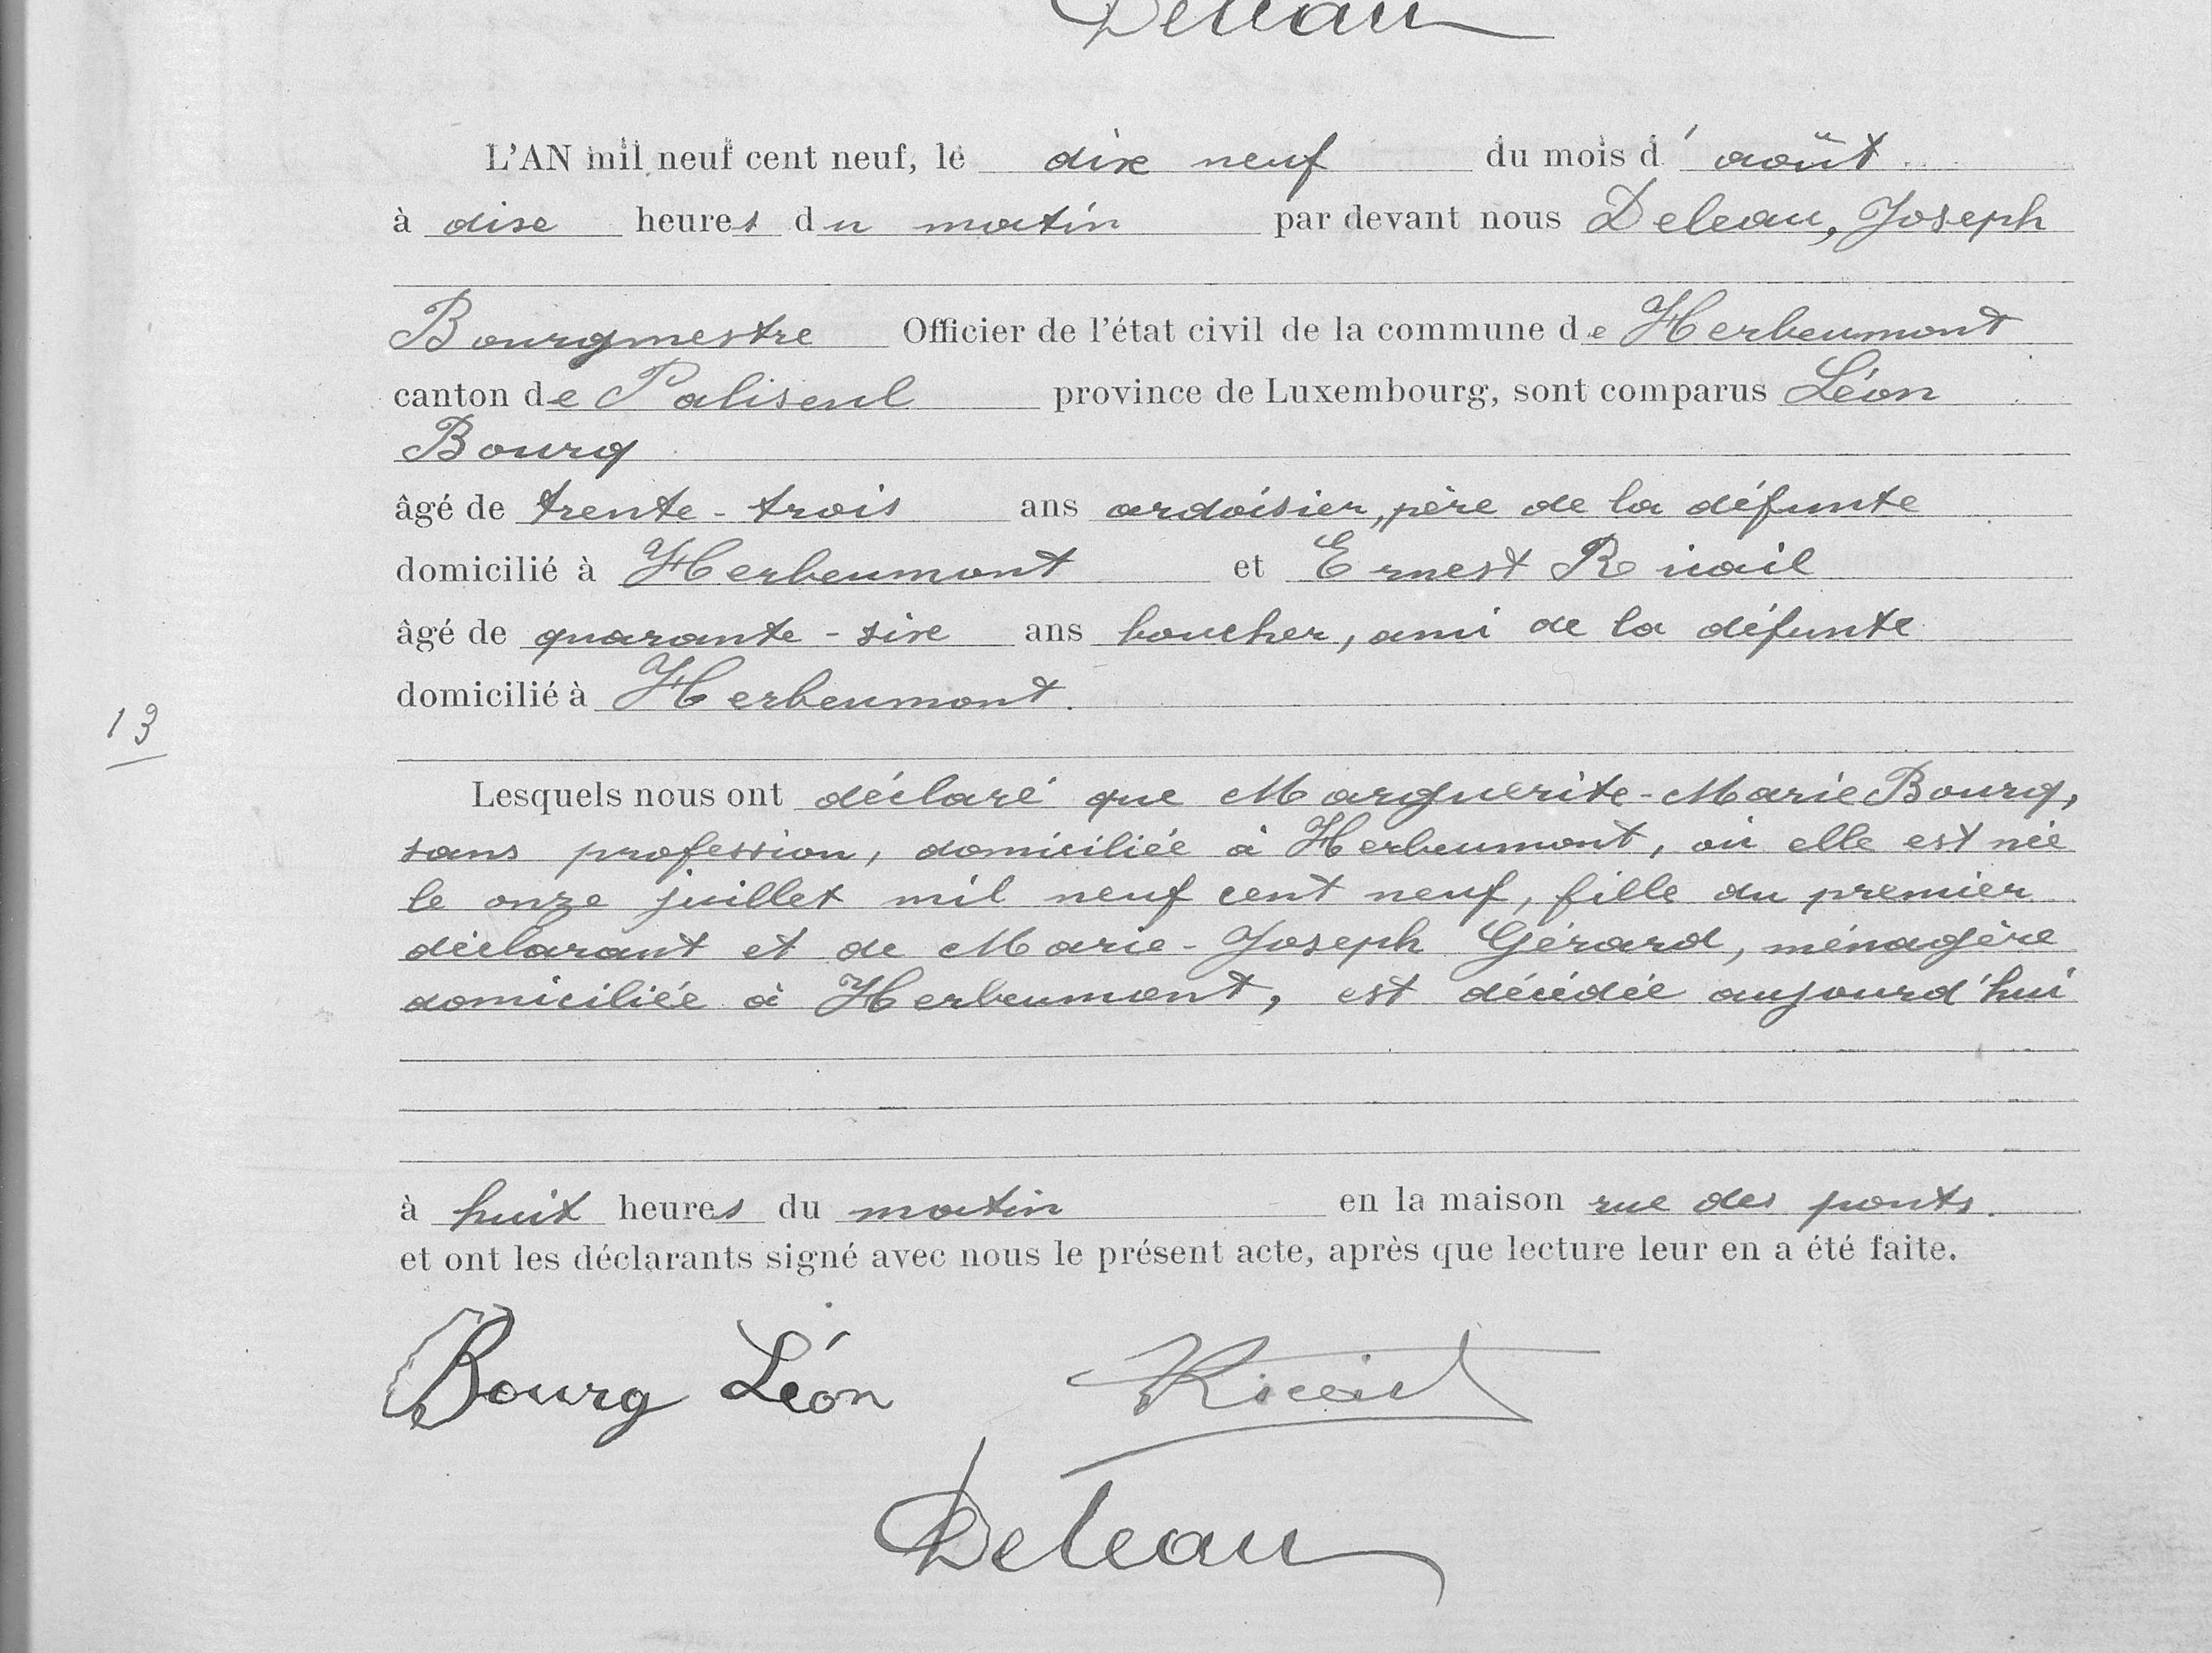 Deleau
L'AN mil neuf cent neuf, le dix neuf du mois d' août
à dix heures du matin par devant nous Deleau, Joseph
Bourgmestre Officier de l'état civil de la commune de Herbeumont
canton de Paliseul province de Luxembourg, sont comparus Léon
Bourg
âgé de trente-trois ans ardoisier, père de la défunte
domicilié à Herbeumont et Ernest
âgé de quarante-six ans boucher, ami de la défunte
domicilié à Herbeumont.
13
Lesquels nous ont déclaré que Marguerite-Marie Bourg,
sans profession, domiciliée à Herbeumont, où elle est née
le onze juillet mil neuf cent neuf, fille du premier
déclarant et de Marie-Joseph Gérard, ménagère
domiciliée à Herbeumont, est décédée aujourd'hui
à huit heures du matin en la maison rue des ponts.
et ont les déclarants signé avec nous le présent acte, après que lecture leur en a été faite.
Bourg Léon
Deleau